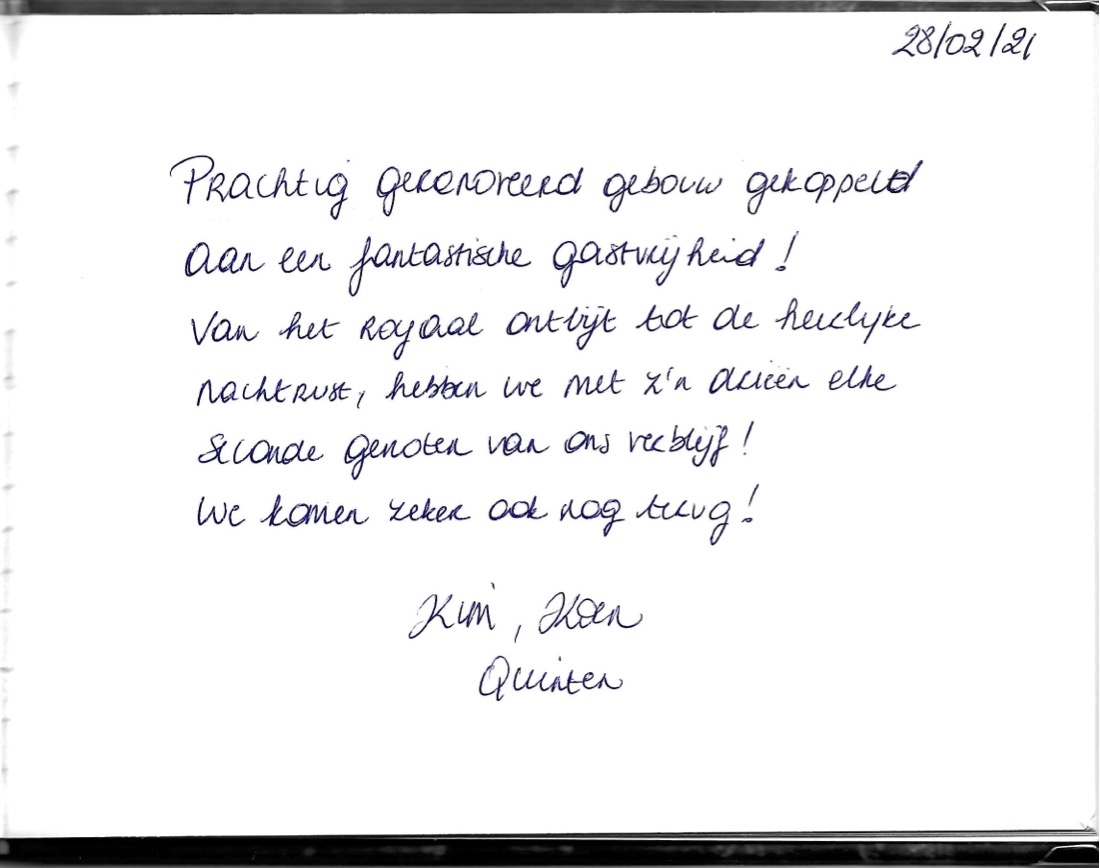 28/02/21
Prachtig gerenoveerd gebouw gekoppeld
aan een fantastische gastvrijheid!
Van het royaal ontbijt tot de heerlijke
nachtrust, hebben we met z'n drieën elke
seconde genoten van ons verblijf!
We komen zeker ook nog terug!
Kim, Koen
Quinten